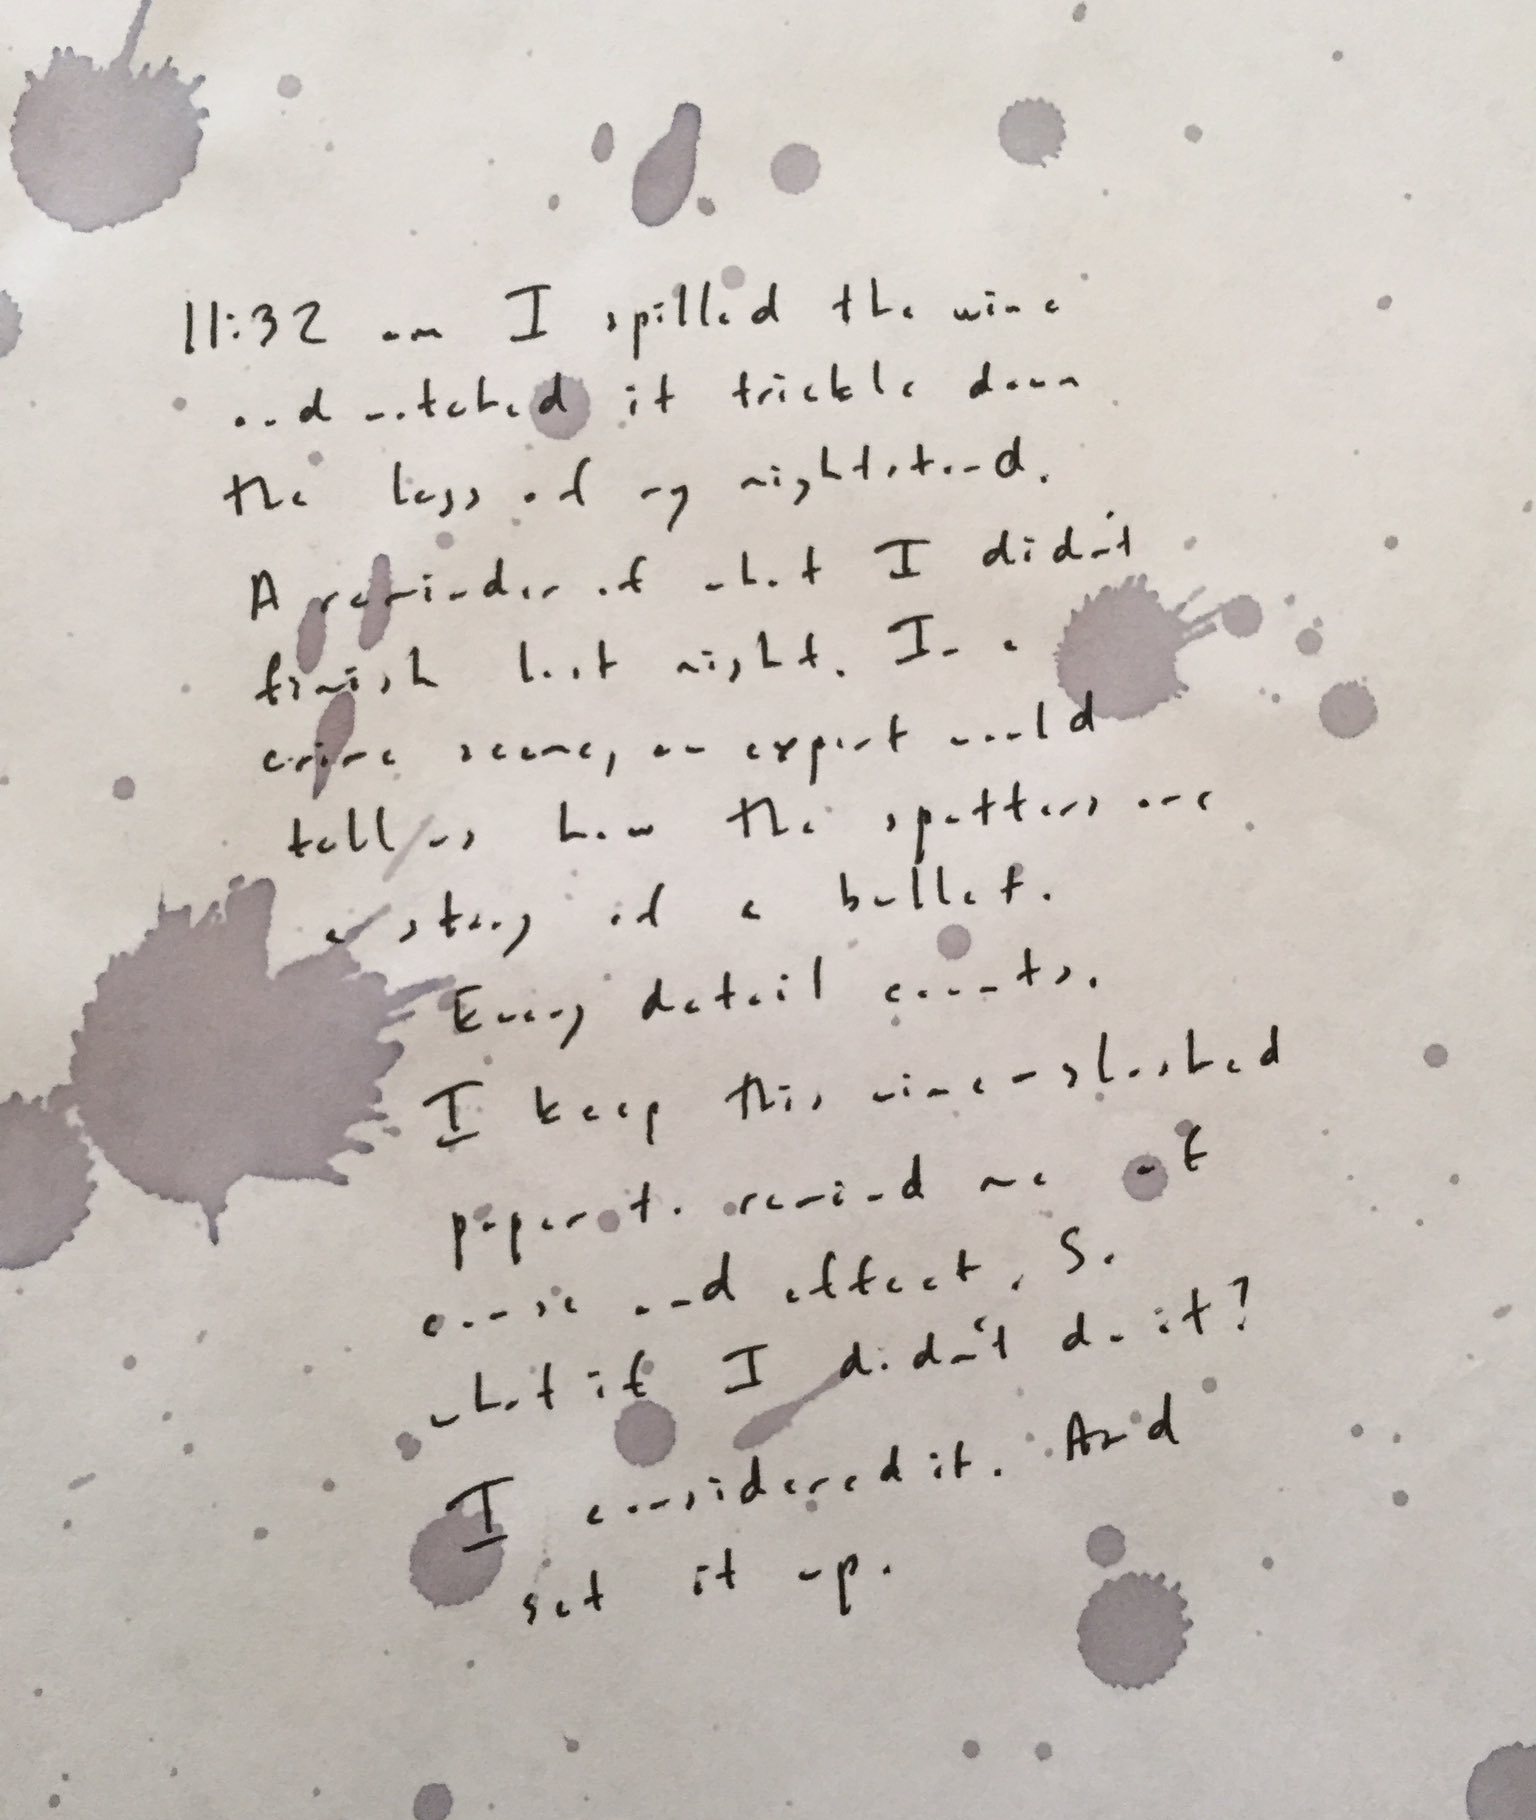 11:32 am I spilled the wine
and watched it trickle down
the legs of my nightstand.
A reminder of what I didn't
finish last night. In a
crime scene, an expert would
tell us how the spatters are
a story of a bullet.
Every detail counts.
I keep this wine-sloshed
paper to remind me of
cause and effect. So
what if I didn't do it?
I considered it. And
set it up.